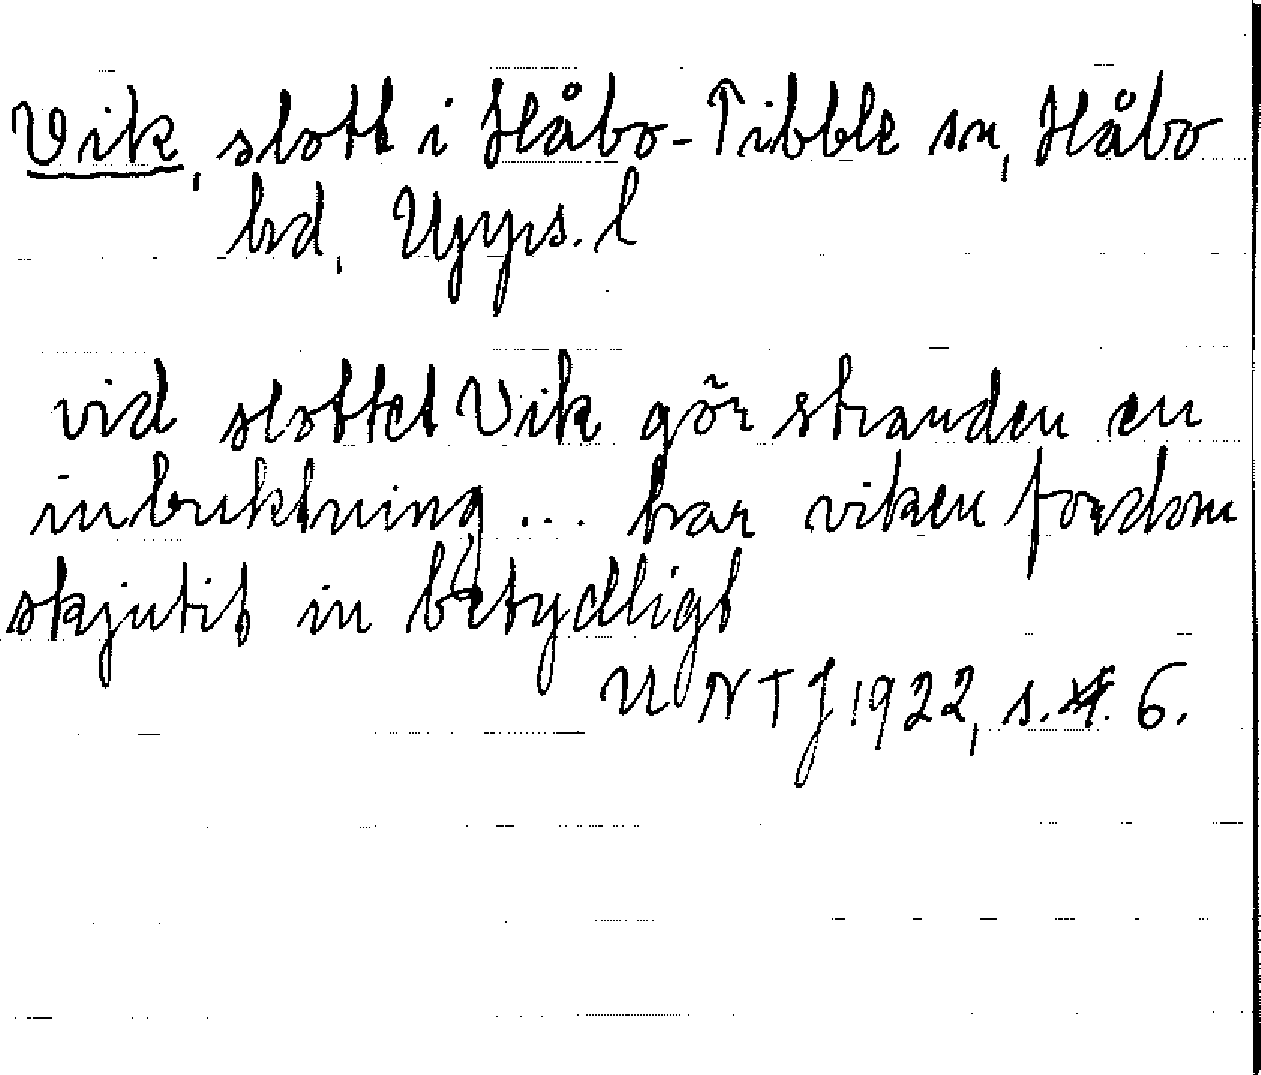 Vik, slott i Håbo-Tibble sn, Håbo
hd, Upps. l
vid slottet Vik gör stranden en
inbuktning... har viken fordom
skjutit in betydligt
UNTJ 1922, s. 6.